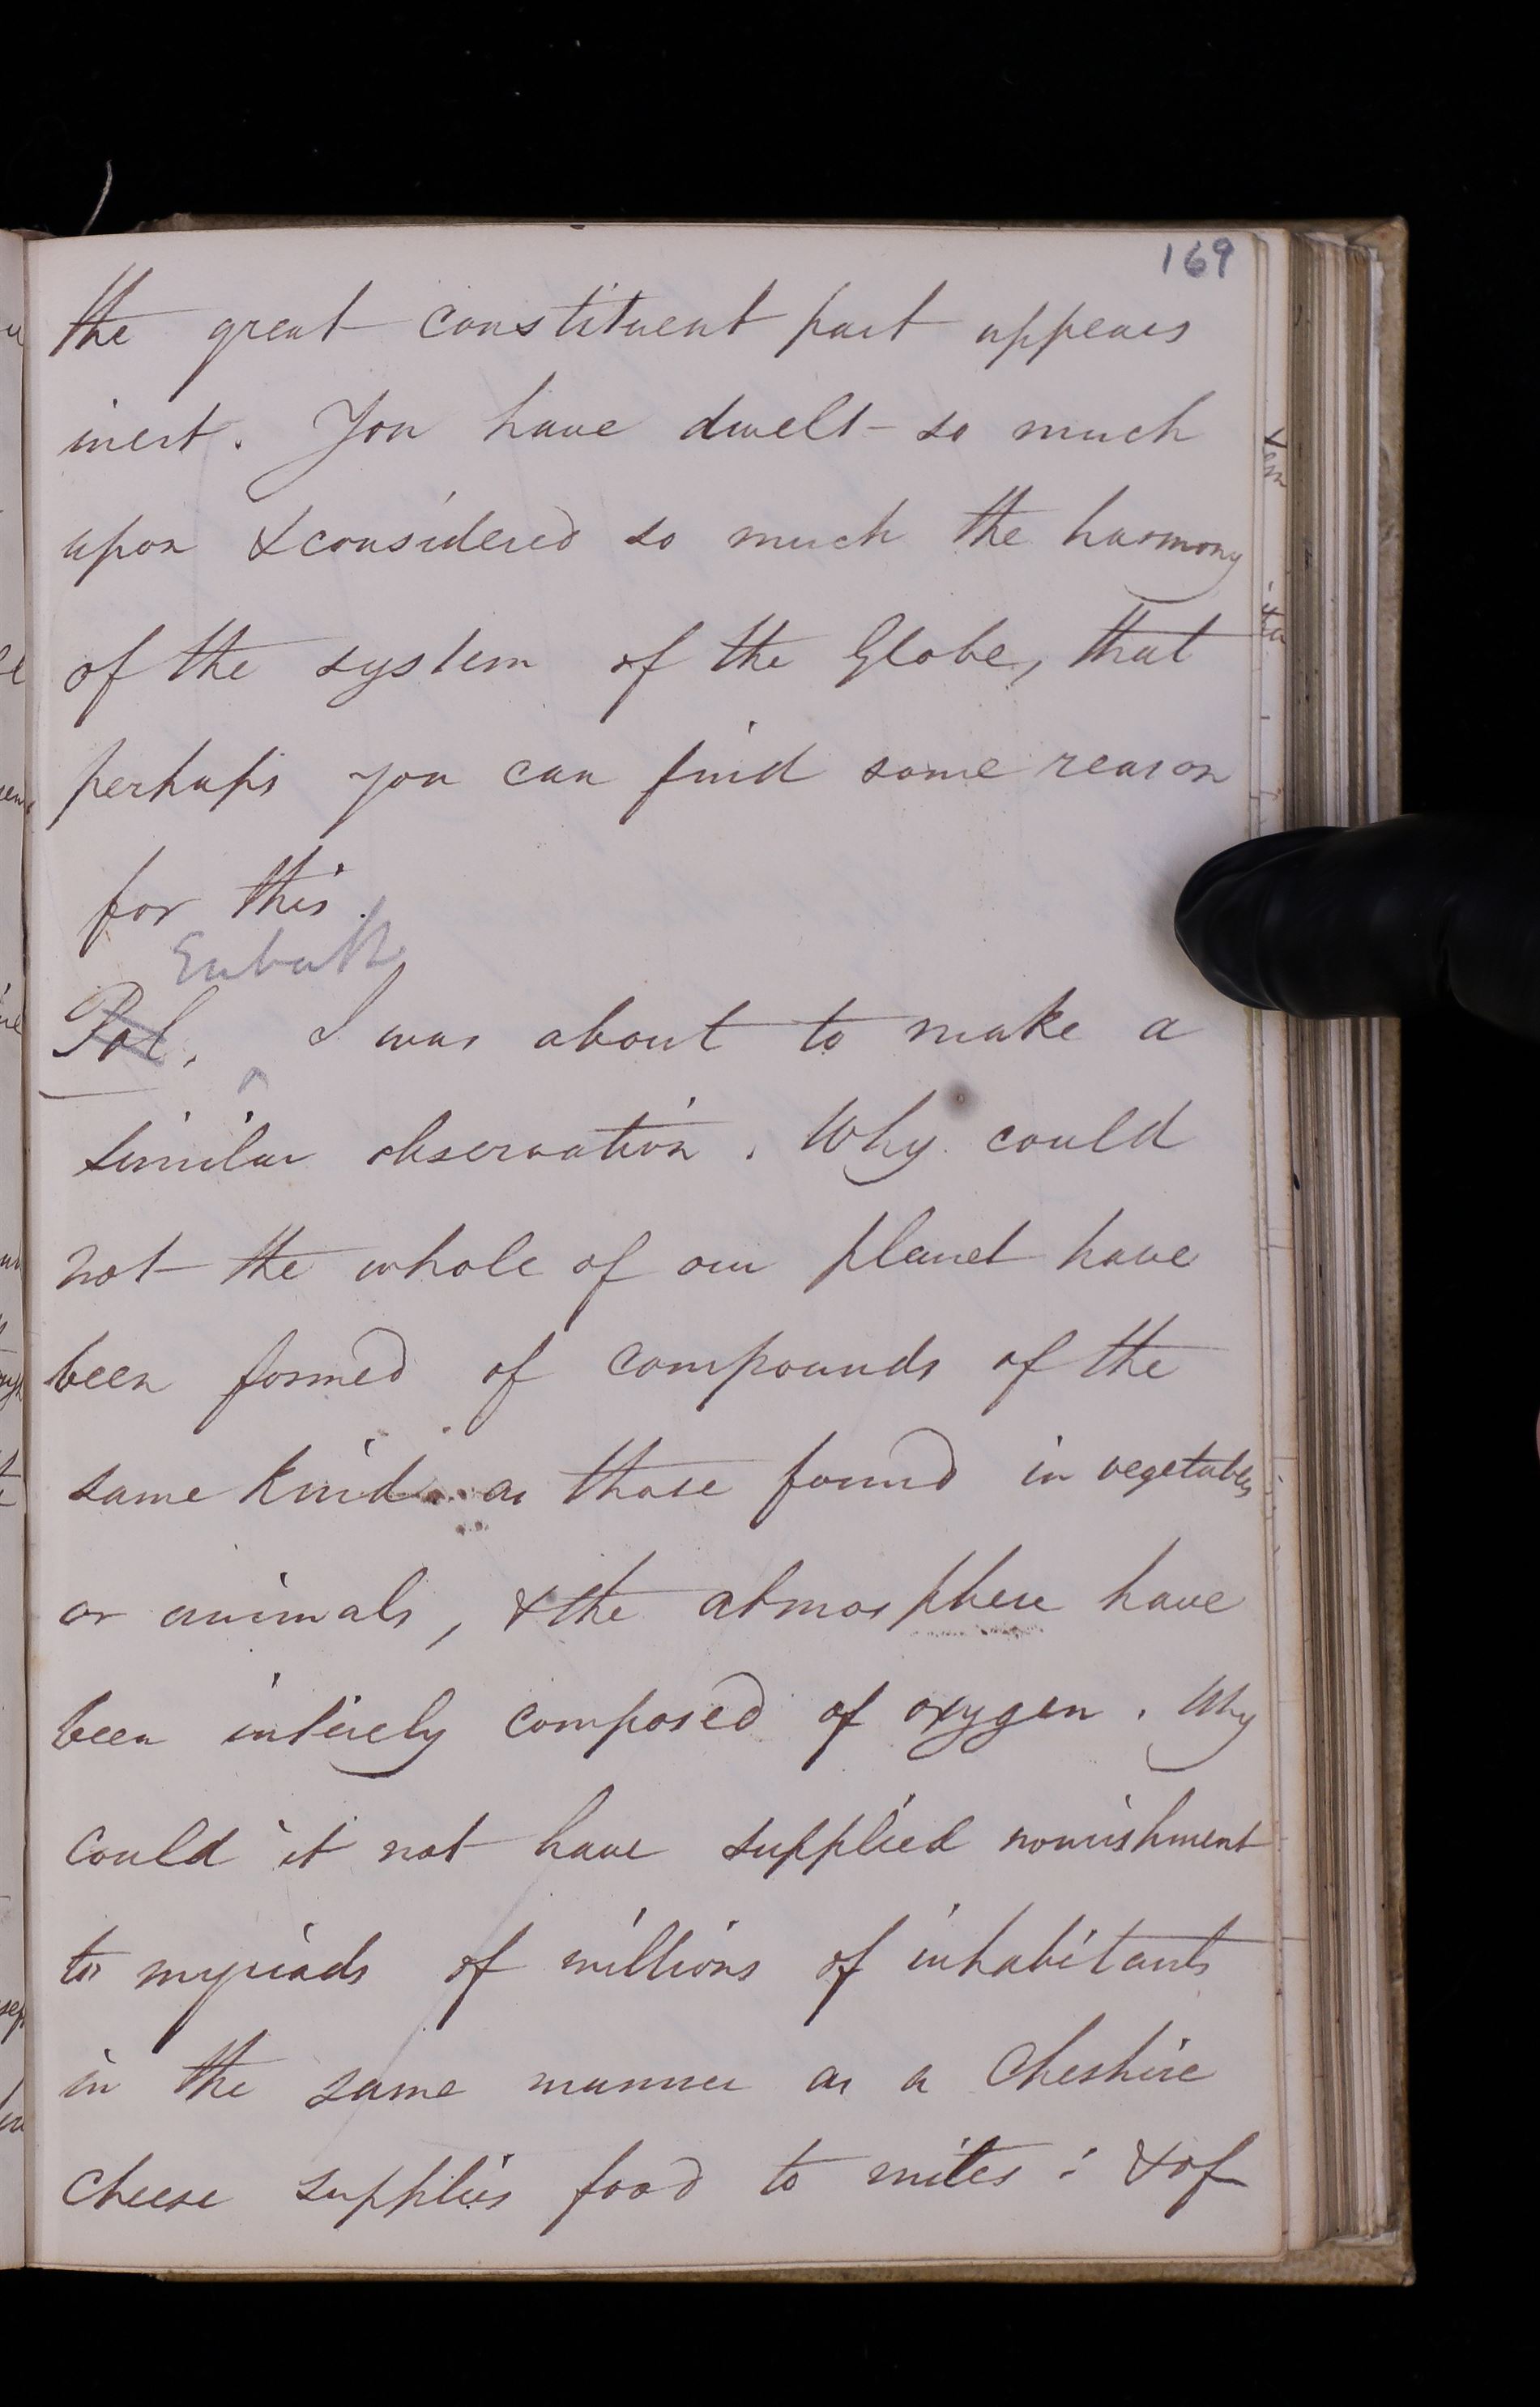 169
the great constituent part appears
inert. You have dwelt so much
upon & considered so much the harmony
of the system of the Globe, that
perhaps you can find some reason
for this.
Eubath
Pol. I was about to make a
similar observation. Why could
not the whole of our planet have
been formed of compounds of the
same kind as those found in vegetables
or animals, & the atmosphere have
been intirely composed of oxygen. Why
could it not have supplied nourishment
to myriads of millions of inhabitants
in the same manner as a Cheshire
cheese supplies food to mites: & of